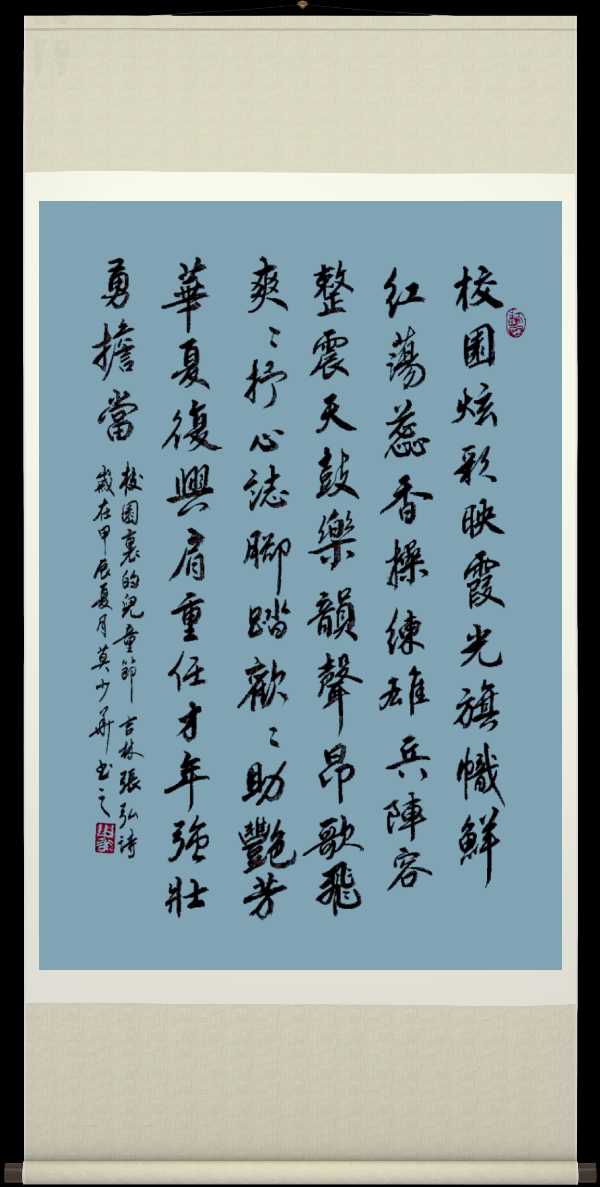 校園炫彩映霞光旗幟鮮
红蕩蕊香操練雄兵陣容
整震天鼓樂韻聲昂歌飛
爽〻抒心誌腳踏歡〻助艷芳
華夏復興肩重任才年強壯
勇擔當
校園裏的兒童節 吉林張弘詩
歲在甲辰夏月莫少華书之